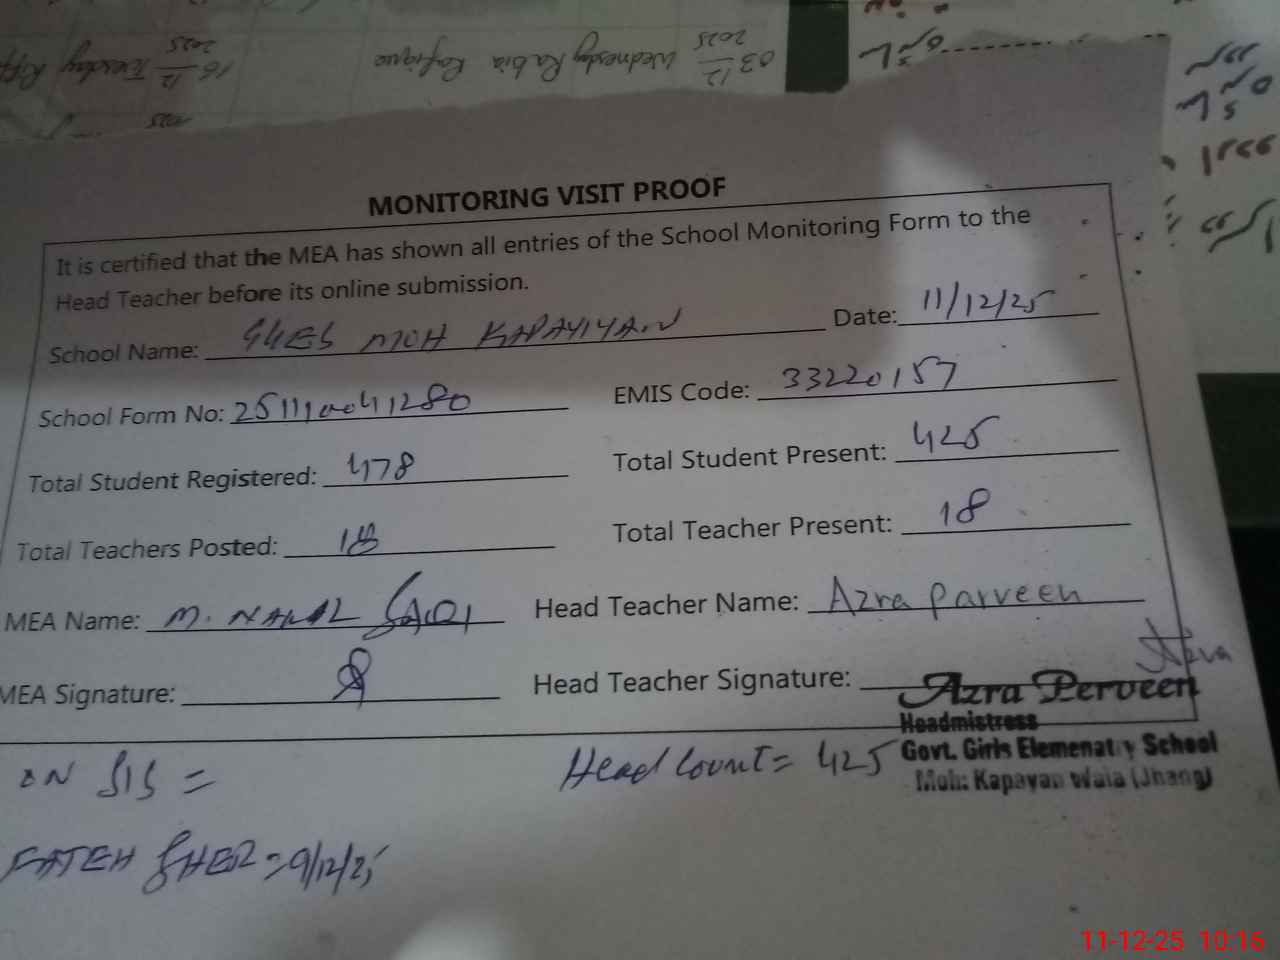 03/12 2025 Wednesday Rabia Rafique
16/12 2025 Tuesday
2025
MONITORING VISIT PROOF
It is certified that the MEA has shown all entries of the School Monitoring Form to the
Head Teacher before its online submission.
School Name: GGES MOH KAPAYIYAN Date: 11/12/25
School Form No: 251110041280 EMIS Code: 33220157
Total Student Registered: 478 Total Student Present: 425
Total Teachers Posted: 18 Total Teacher Present: 18
MEA Name: M. Head Teacher Name: Azra Parveen
MEA Signature: Head Teacher Signature: Azra
Azra Perveen
Headmistress
Govt. Girls Elemenatry School
Moh: Kapayan Wala (Jhang)
ON SIS = Head Count = 425
FATEH SHER = 9/12/25
11-12-25 10:16